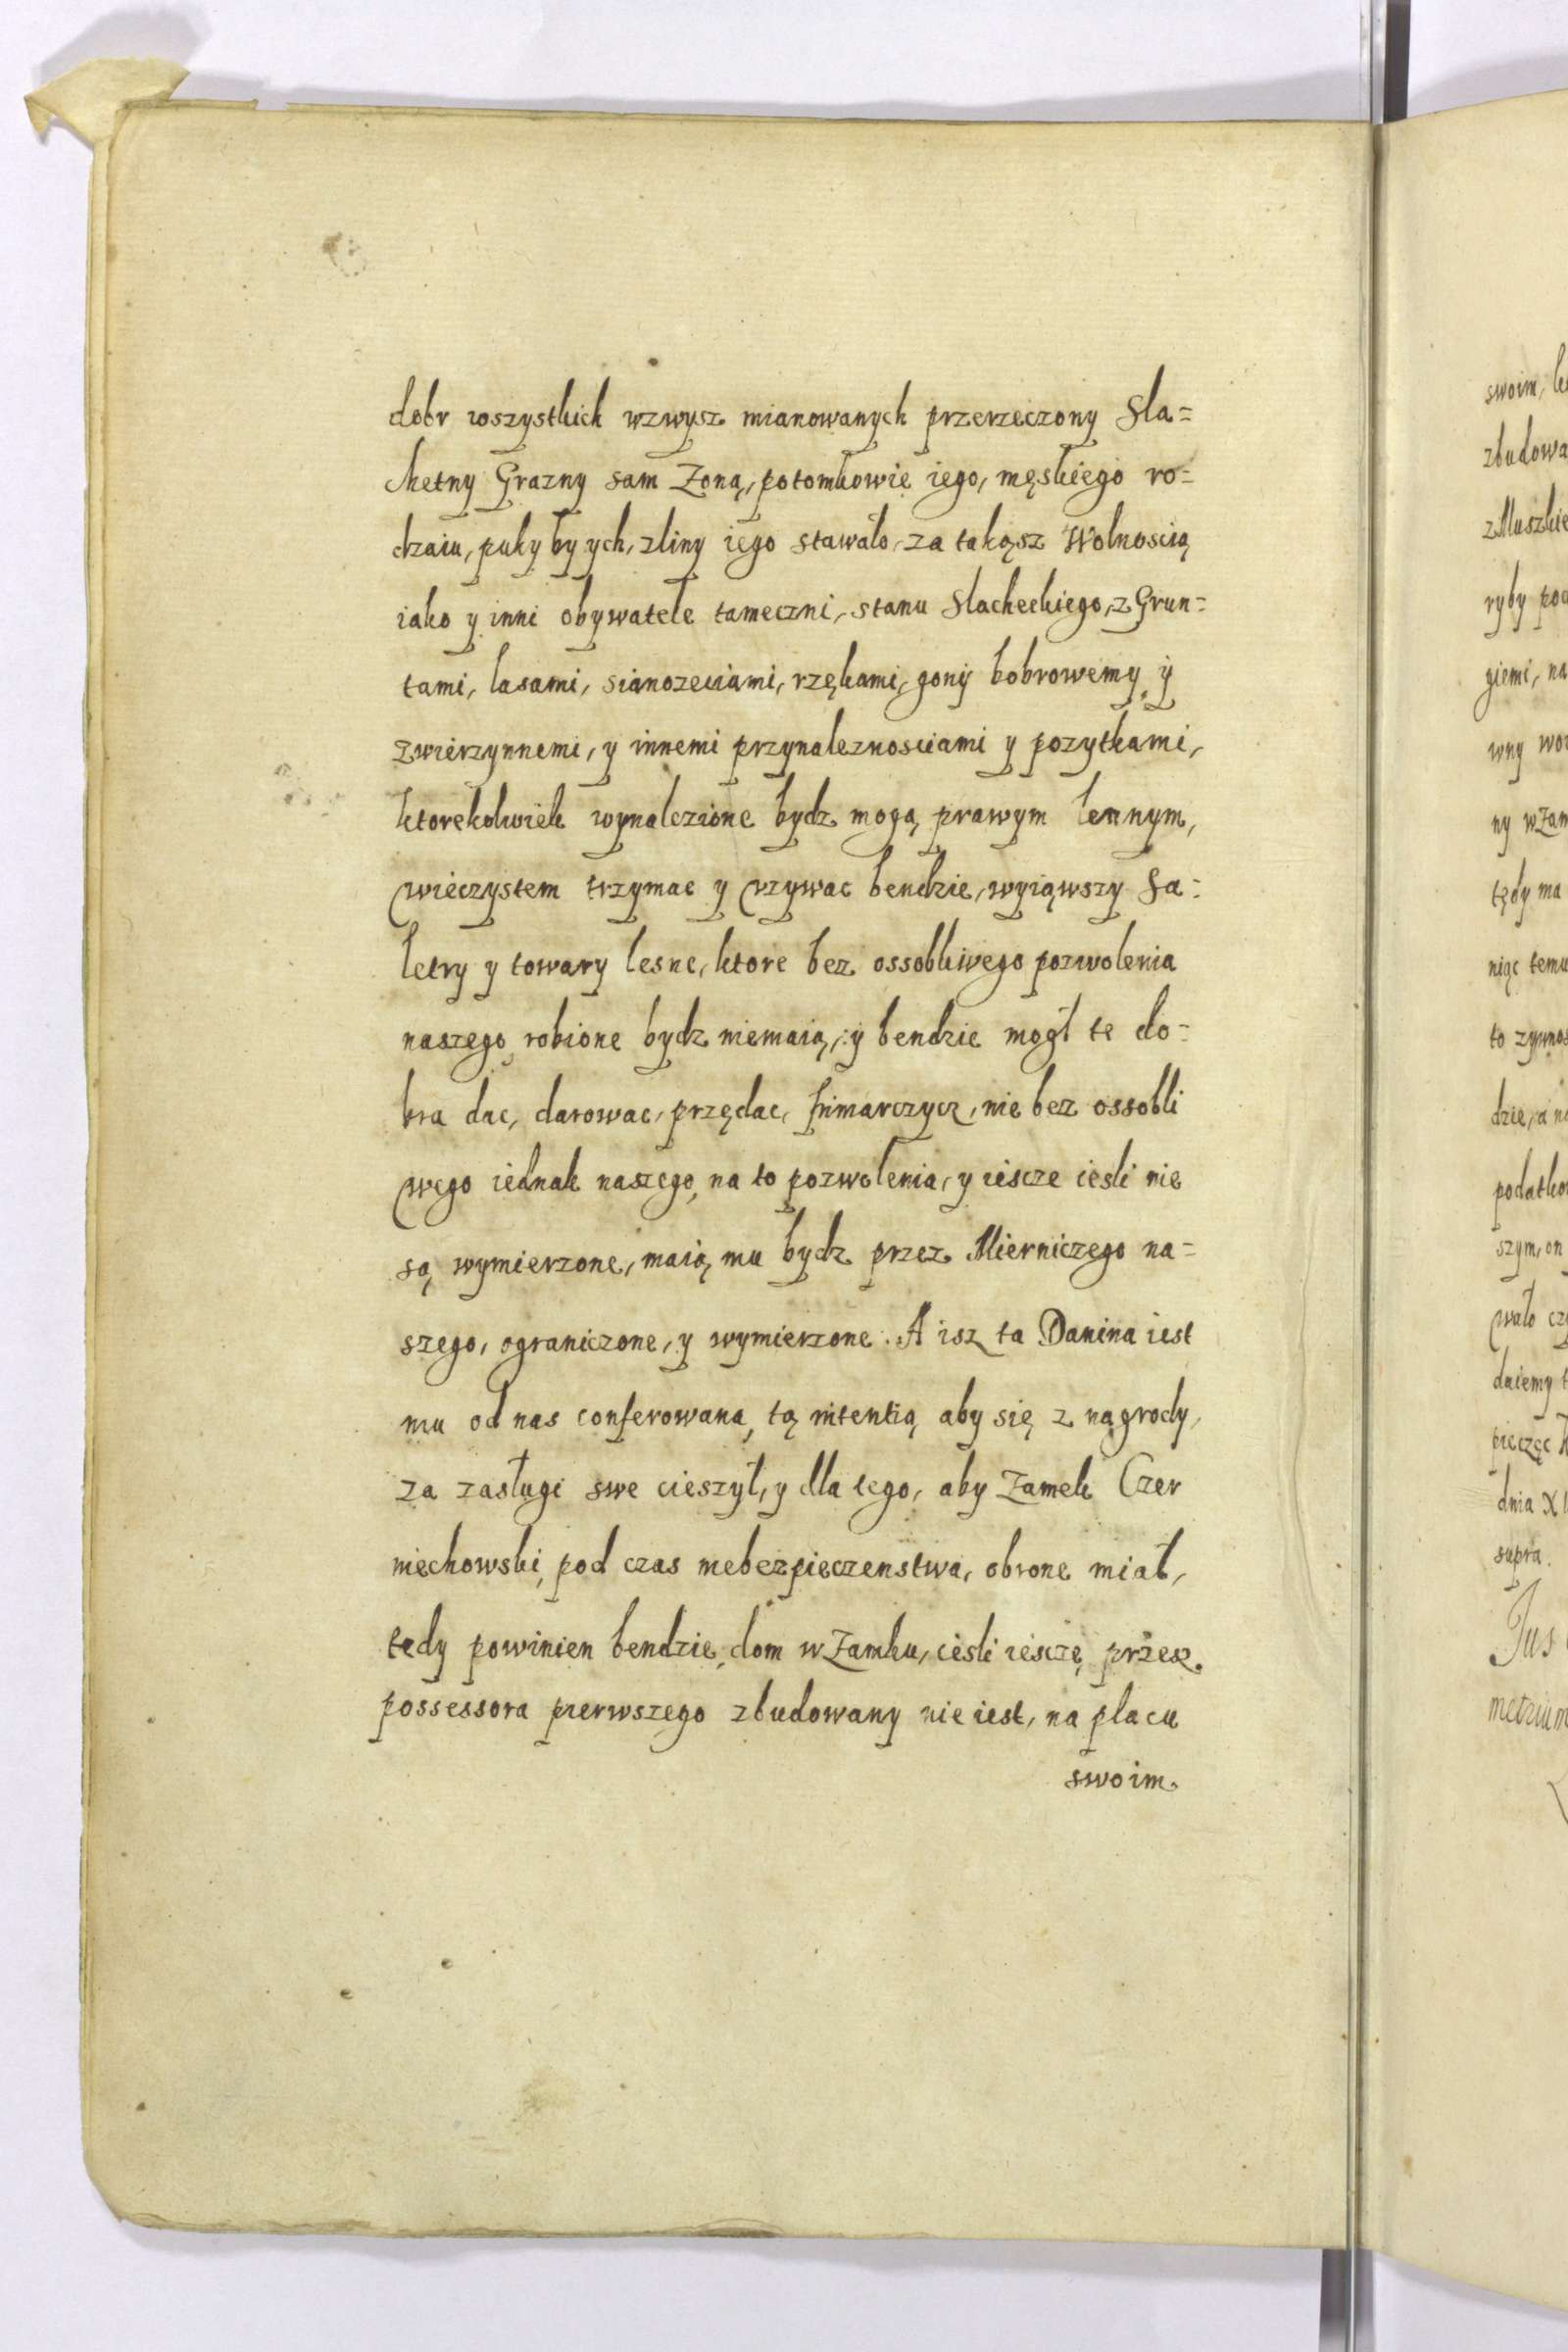 dobr wszystkich wzwysz mianowanych przerzeczony Sla=
chetny Grazny sam Zoną, potomkowie iego, męskiego ro=
dzaiu, puky by ych, zliny iego stawało, za takąsz Wolnoscią
iako y inni obywatele tameczni, stanu Slacheckiego, z Grun=
tami, lasami, sianozeciami, rzękami, gony bobrowemy y
zwierzynnemi, y innemi przynaleznosciami y pozytkami,
ktorekolwiek wynalezione bydz mogą prawym lennym,
wieczystem trzymac y vzywac bendzie, wyiąwszy Sa=
letry y towary lesne, ktore bez ossobliwego pozwolenia
naszego robione bydz niemaią, y bendzie mogł te do=
bra dac, darowac, przędac, frimarczycz, nie bez ossobli
wego iednak naszego na to pozwolenia, y iescze iesli nie
są wymierzone, maią mu bydz przez Mierniczego na=
szego, ograniczone, y wymierzone. A isz ta Danina iest
mu od nas conferowana, tą intentią aby się z nągrody,
za zasługi swe cieszył, y dla tego, aby Zamek Czer
niechowski, pod czas niebezpieczenstwa, obrone miał,
tedy powinien bendzie, dom w Zamku, iesli iesczę przesz
possessora pierwszego zbudowany nie iest, na placu
swoim.
swoim,
zbudowa
z Muszkie
ryby
giemi, na
wny
ny w Zam
tędy ma
niąc temu
to
dzie, a
podatko
szym, on
wało
daiemy
pieczęc
dnia
supra.
Jus